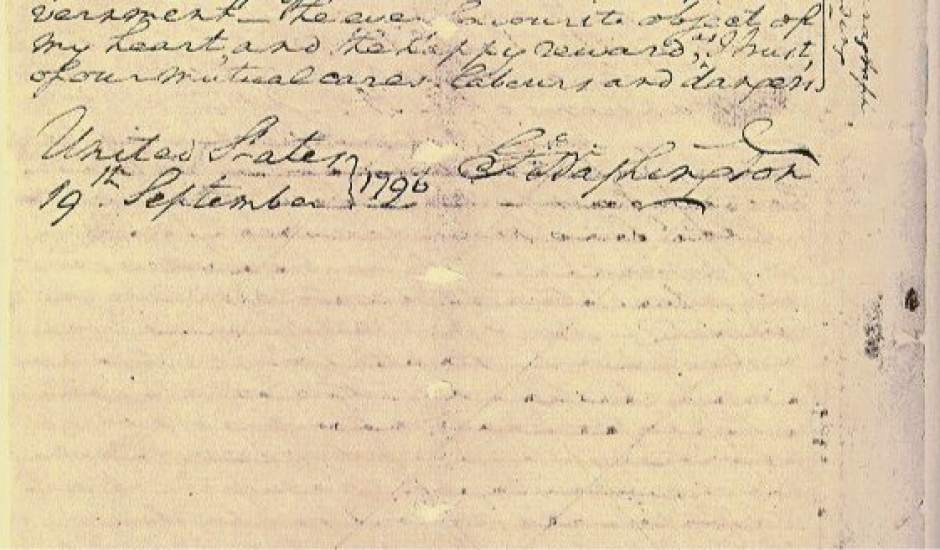 vernment — the ever favourite object of
my heart, and the happy reward, as I trust,
of our mutual cares, labours and dangers.
United States
19th September } 1796
Go Washington